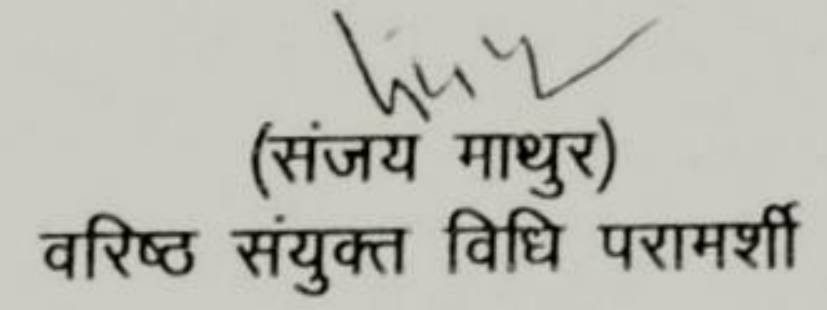 (संजय माथुर)
वरिष्ठ संयुक्त विधि परामर्शी